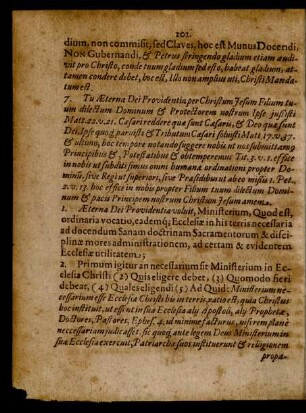 101.
dium, non commisit; sed Claves, hoc est Munus Docendi,
NON Gubernandi, & Petrus stringendo gladium etiam audi-
vit pro Christo, conde tuum gladium sed esto, habeat gladium, at-
tamen condere debet, hoc est, Illo non amplius uti, Christi Manda-
tum est.
7. Tu Æterna Dei Providentia per Christum Jesum Filium tu-
um dilectum Dominum & Protectorem nostrum Ipse jussisti
Matt. 22. v. 21. Cæsari reddere quæ sunt Cæsaris, & Deo quæ sunt
Dei. Ipse quoq; paruisti & Tributum Cæsari solvisti Matt. 17. v.
& ultimo, hoc tempore notando suggere nobis ut nos submittamq;
Principibus &, Potestatibus & obtemperemus Tit. 3. v. 1. effice
in nobis ut subditi simus omni humanæ ordinationi propter Do-
minum, sive Regi ut superiori, sive Præsidibus ut ab eo missis 1. Pet.
2. v. 13. hoc effice in nobis propter Filium tuum dilectum Domi-
num & pacis Principem nostrum Christum Jesum amen.
Æterna Dei Providentia voluit, Ministerium, Quod est,
ordinaria vocatio, eademq; Ecclesiæ in his terris necessaria
ad docendum Sanam doctrinam Sacramentorum & disci-
plinæ mores administrationem, ad certam & evidentem
Ecclesiæ utilitatem.
2. Primum igitur an necessarium sit Ministerium in Ec-
clesia Christi (2) Quis eligere debet, (3) Quomodo fieri
debeat, (4) Quales eligendi (5) Ad Quid: Ministerium ne-
cessarium esse Ecclesiæ Christi hic in terris, ratio est; quia Christus
hoc instituit, ut essent in sua Ecclesia alij Apostoli, alij Prophetæ,
Doctores, Pastores, Ephes. 4. id minime facturus, nisi rem planè
necessariam judicasset. sic quoq; ante legem Deus Ministerium in
suâ Ecclesia exercuit, Patriarchæ suos instituerunt & religionem
propa-